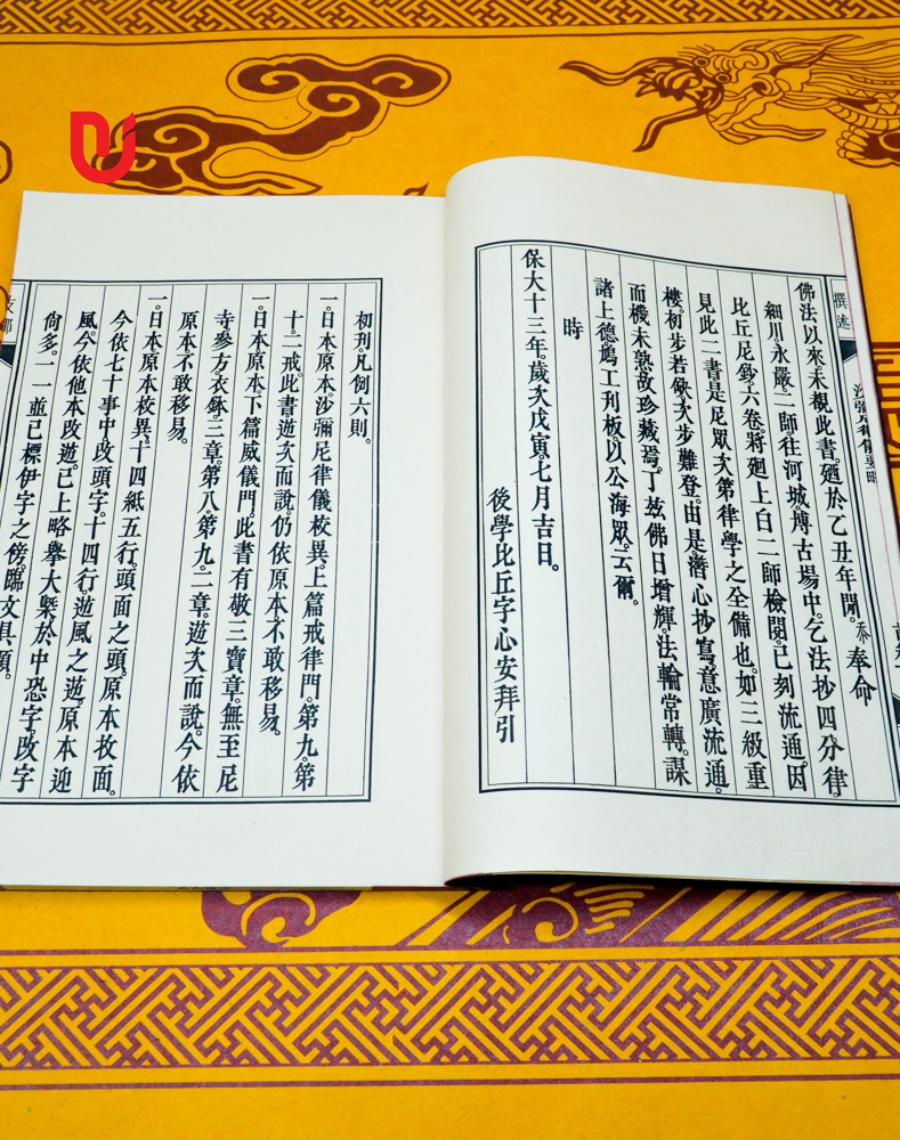 佛法以來。未覩此書。廼於乙丑年閒。忝奉命
細川。永嚴。二師。往河城。塼古場中。乞法抄四分律。
比丘尼鈔。六卷。將廻上白二師檢閱。已刻流通。因
見此二書。是足眾次第律學之全備也。如三級重
樓。初步若缺。次步難登。由是潛心抄寫。意廣流通。
而機未熟。故珍藏焉。丁兹佛日增輝。法輪常轉。謀
諸上德。鳩工刊板。以公海眾。云爾。
時
保大十三年。歲次戊寅。七月吉日。
後學比丘字心安拜引
初刊。凡例六則。
一。日本原本。沙彌尼律儀校異。上篇戒律門。第九。第
十。二戒。此書遊次而說。仍依原本。不敢移易。
一。日本原本。下篇威儀門。此書有敬三寶章。無至尼
寺。參方。衣鉢。三章。第八。第九。二章。遊次而說。今依
原本。不敢移易。
一。日本原本校異。十四紙五行。頭面之頭。原本抆面。
今依七十事中。改頭字。十四行。遊風之遊。原本迎
風。今依他本改遊。已上略舉大槩。於中恐字。改字
尙多。一一並已標伊字之傍。臨文具顯。
撰述